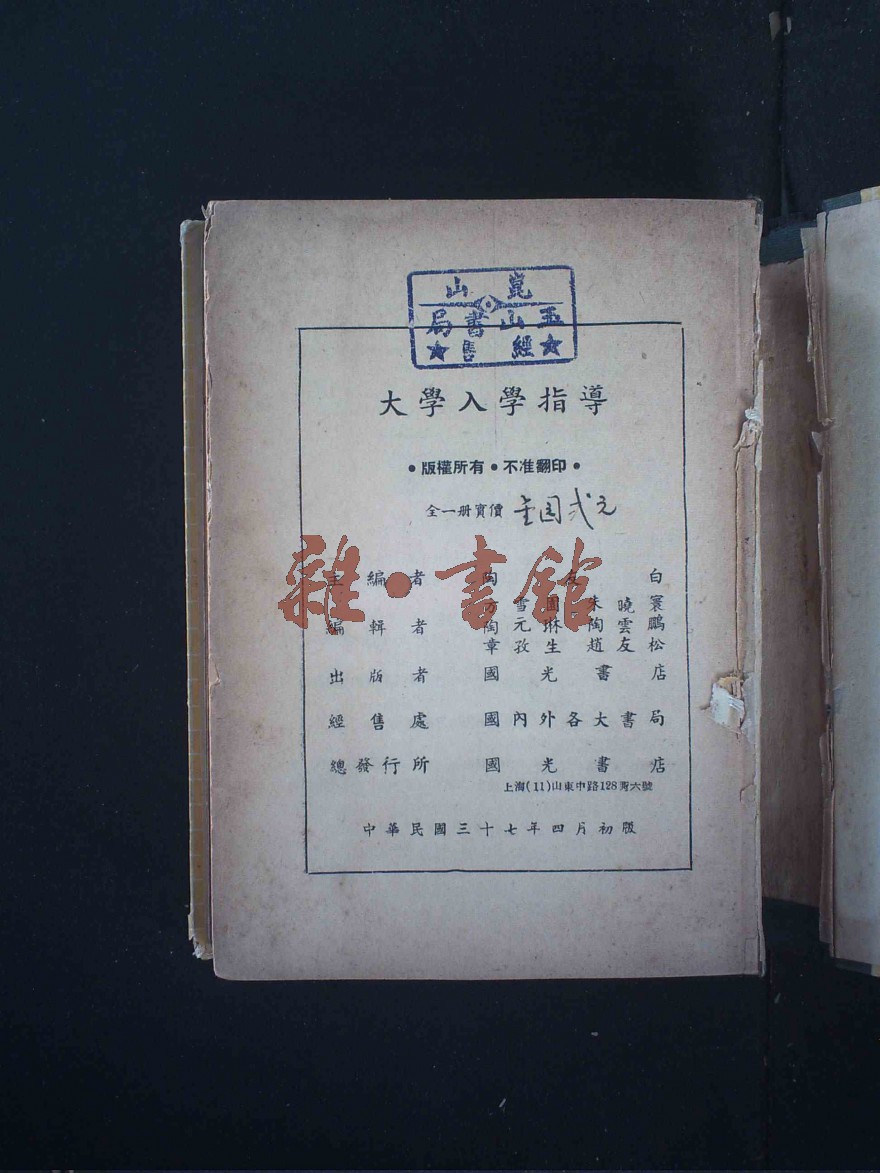 崑山
玉山書局
★經售★
大學入學指導
•版權所有•不准翻印•
全一册實價 金圆弍元
雜·書館
主編者 陶 白
編輯者 雪 朱曉寰
陶元琳 陶雲鵬
章孜生 趙友松
出版者 國光書店
經售處 國內外各大書局
總發行所 國光書店
上海(11)山東中路128弄六號
中華民國三十七年四月初版